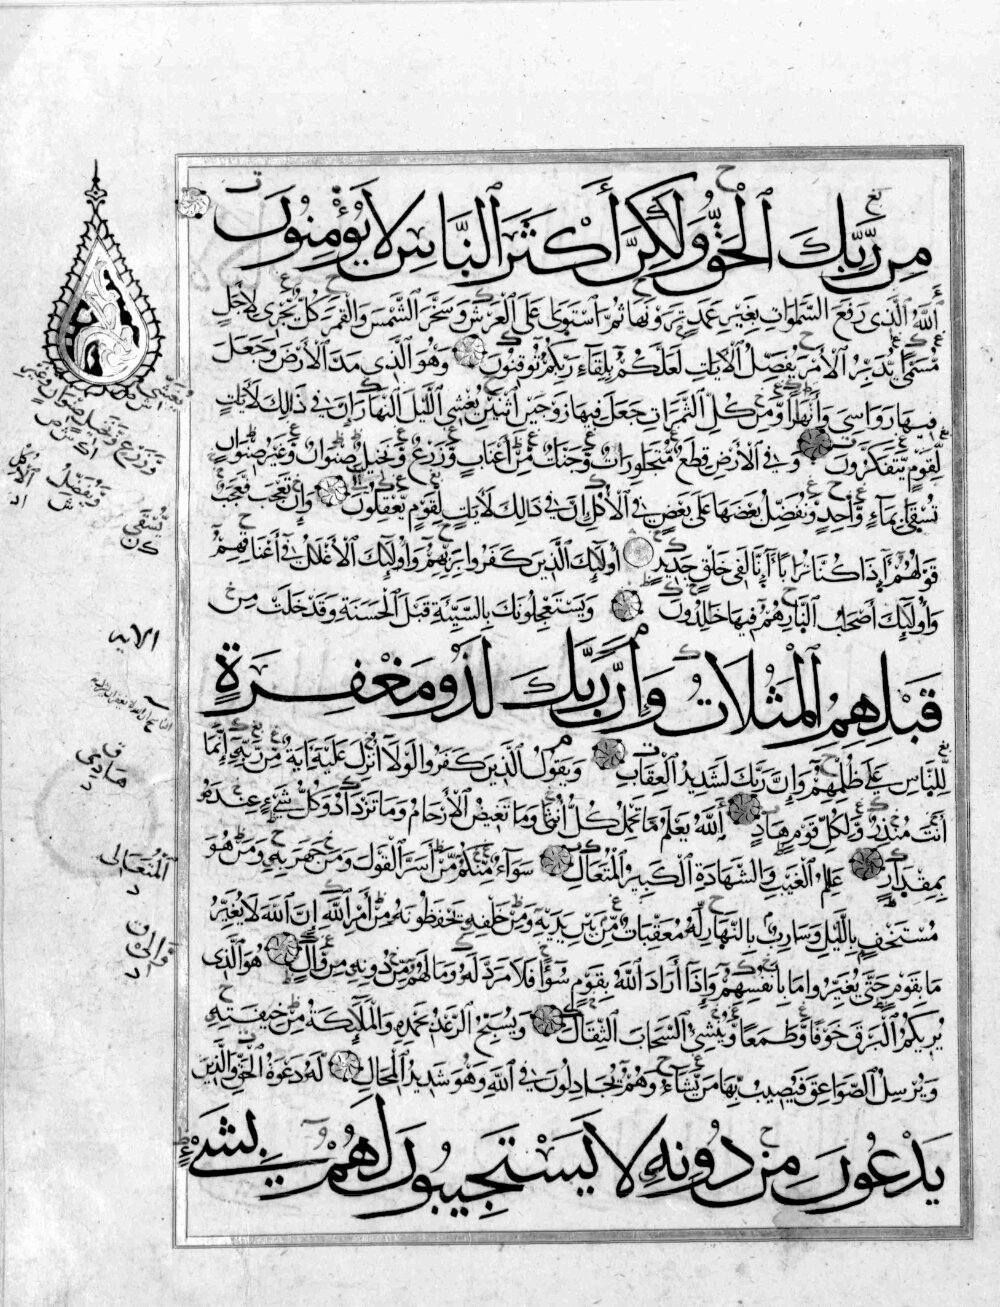 مِن رَّبِّكَ الْحَقُّ وَلَٰكِنَّ أَكْثَرَ النَّاسِ لَا يُؤْمِنُونَ
اللَّهُ الَّذِي رَفَعَ السَّمَاوَاتِ بِغَيْرِ عَمَدٍ تَرَوْنَهَا ثُمَّ اسْتَوَىٰ عَلَى الْعَرْشِ وَسَخَّرَ الشَّمْسَ وَالْقَمَرَ كُلٌّ يَجْرِي لِأَجَلٍ
مُّسَمًّى يُدَبِّرُ الْأَمْرَ يُفَصِّلُ الْآيَاتِ لَعَلَّكُم بِلِقَاءِ رَبِّكُمْ تُوقِنُونَ وَهُوَ الَّذِي مَدَّ الْأَرْضَ وَجَعَلَ
فِيهَا رَوَاسِيَ وَأَنْهَارًا وَمِن كُلِّ الثَّمَرَاتِ جَعَلَ فِيهَا زَوْجَيْنِ اثْنَيْنِ يُغْشِي اللَّيْلَ النَّهَارَ إِنَّ فِي ذَٰلِكَ لَآيَاتٍ
لِّقَوْمٍ يَتَفَكَّرُونَ وَفِي الْأَرْضِ قِطَعٌ مُّتَجَاوِرَاتٌ وَجَنَّاتٌ مِّنْ أَعْنَابٍ وَزَرْعٌ وَنَخِيلٌ صِنْوَانٌ وَغَيْرُ صِنْوَانٍ
تُسْقَىٰ بِمَاءٍ وَاحِدٍ وَنُفَضِّلُ بَعْضَهَا عَلَىٰ بَعْضٍ فِي الْأُكُلِ إِنَّ فِي ذَالِكَ لَآيَاتٍ لِّقَوْمٍ يَعْقِلُونَ وَإِن تَعْجَبْ فَعَجَبٌ
قَوْلُهُمْ أَإِذَا كُنَّا تُرَابًا أَإِنَّا لَفِي خَلْقٍ جَدِيدٍ أُولَٰئِكَ الَّذِينَ كَفَرُوا بِرَبِّهِمْ وَأُولَٰئِكَ الْأَغْلَالُ فِي أَعْنَاقِهِمْ
وَأُولَٰئِكَ أَصْحَابُ النَّارِ هُمْ فِيهَا خَالِدُونَ وَيَسْتَعْجِلُونَكَ بِالسَّيِّئَةِ قَبْلَ الْحَسَنَةِ وَقَدْ خَلَتْ مِن
قَبْلِهِمُ الْمَثُلَاتُ وَإِنَّ رَبَّكَ لَذُو مَغْفِرَةٍ
لِّلنَّاسِ عَلَىٰ ظُلْمِهِمْ وَإِنَّ رَبَّكَ لَشَدِيدُ الْعِقَابِ وَيَقُولُ الَّذِينَ كَفَرُوا لَوْلَا أُنزِلَ عَلَيْهِ آيَةٌ مِّن رَّبِّهِ إِنَّمَا
أَنتَ مُنذِرٌ وَلِكُلِّ قَوْمٍ هَادٍ اللَّهُ يَعْلَمُ مَا تَحْمِلُ كُلُّ أُنثَىٰ وَمَا تَغِيضُ الْأَرْحَامُ وَمَا تَزْدَادُ وَكُلُّ شَيْءٍ عِندَهُ
بِمِقْدَارٍ عَالِمُ الْغَيْبِ وَالشَّهَادَةِ الْكَبِيرُ الْمُتَعَالِ سَوَاءٌ مِّنكُم مَّنْ أَسَرَّ الْقَوْلَ وَمَن جَهَرَ بِهِ وَمَنْ هُوَ
مُسْتَخْفٍ بِاللَّيْلِ وَسَارِبٌ بِالنَّهَارِ لَهُ مُعَقِّبَاتٌ مِّن بَيْنِ يَدَيْهِ وَمِنْ خَلْفِهِ يَحْفَظُونَهُ مِنْ أَمْرِ اللَّهِ إِنَّ اللَّهَ لَا يُغَيِّرُ
مَا بِقَوْمٍ حَتَّىٰ يُغَيِّرُوا مَا بِأَنفُسِهِمْ وَإِذَا أَرَادَ اللَّهُ بِقَوْمٍ سُوءًا فَلَا مَرَدَّ لَهُ وَمَا لَهُم مِّن دُونِهِ مِن وَالٍ هُوَ الَّذِي
يُرِيكُمُ الْبَرْقَ خَوْفًا وَطَمَعًا وَيُنشِئُ السَّحَابَ الثِّقَالَ وَيُسَبِّحُ الرَّعْدُ بِحَمْدِهِ وَالْمَلَائِكَةُ مِنْ خِيفَتِهِ
وَيُرْسِلُ الصَّوَاعِقَ فَيُصِيبُ بِهَا مَن يَشَاءُ وَهُمْ يُجَادِلُونَ فِي اللَّهِ وَهُوَ شَدِيدُ الْمِحَالِ لَهُ دَعْوَةُ الْحَقِّ وَالَّذِينَ
يَدْعُونَ مِن دُونِهِ لَا يَسْتَجِيبُونَ لَهُم بِشَيْءٍ
يُغَشِّي
وَزَرْعٍ وَنَخِيلٍ صِنْوَانٍ وَغَيْرِ
وَيُفَضِّلُ
الْأُكْلِ
تُسْقَى
الآية
هَادِي
الْمُتَعَالِي
وَالِي